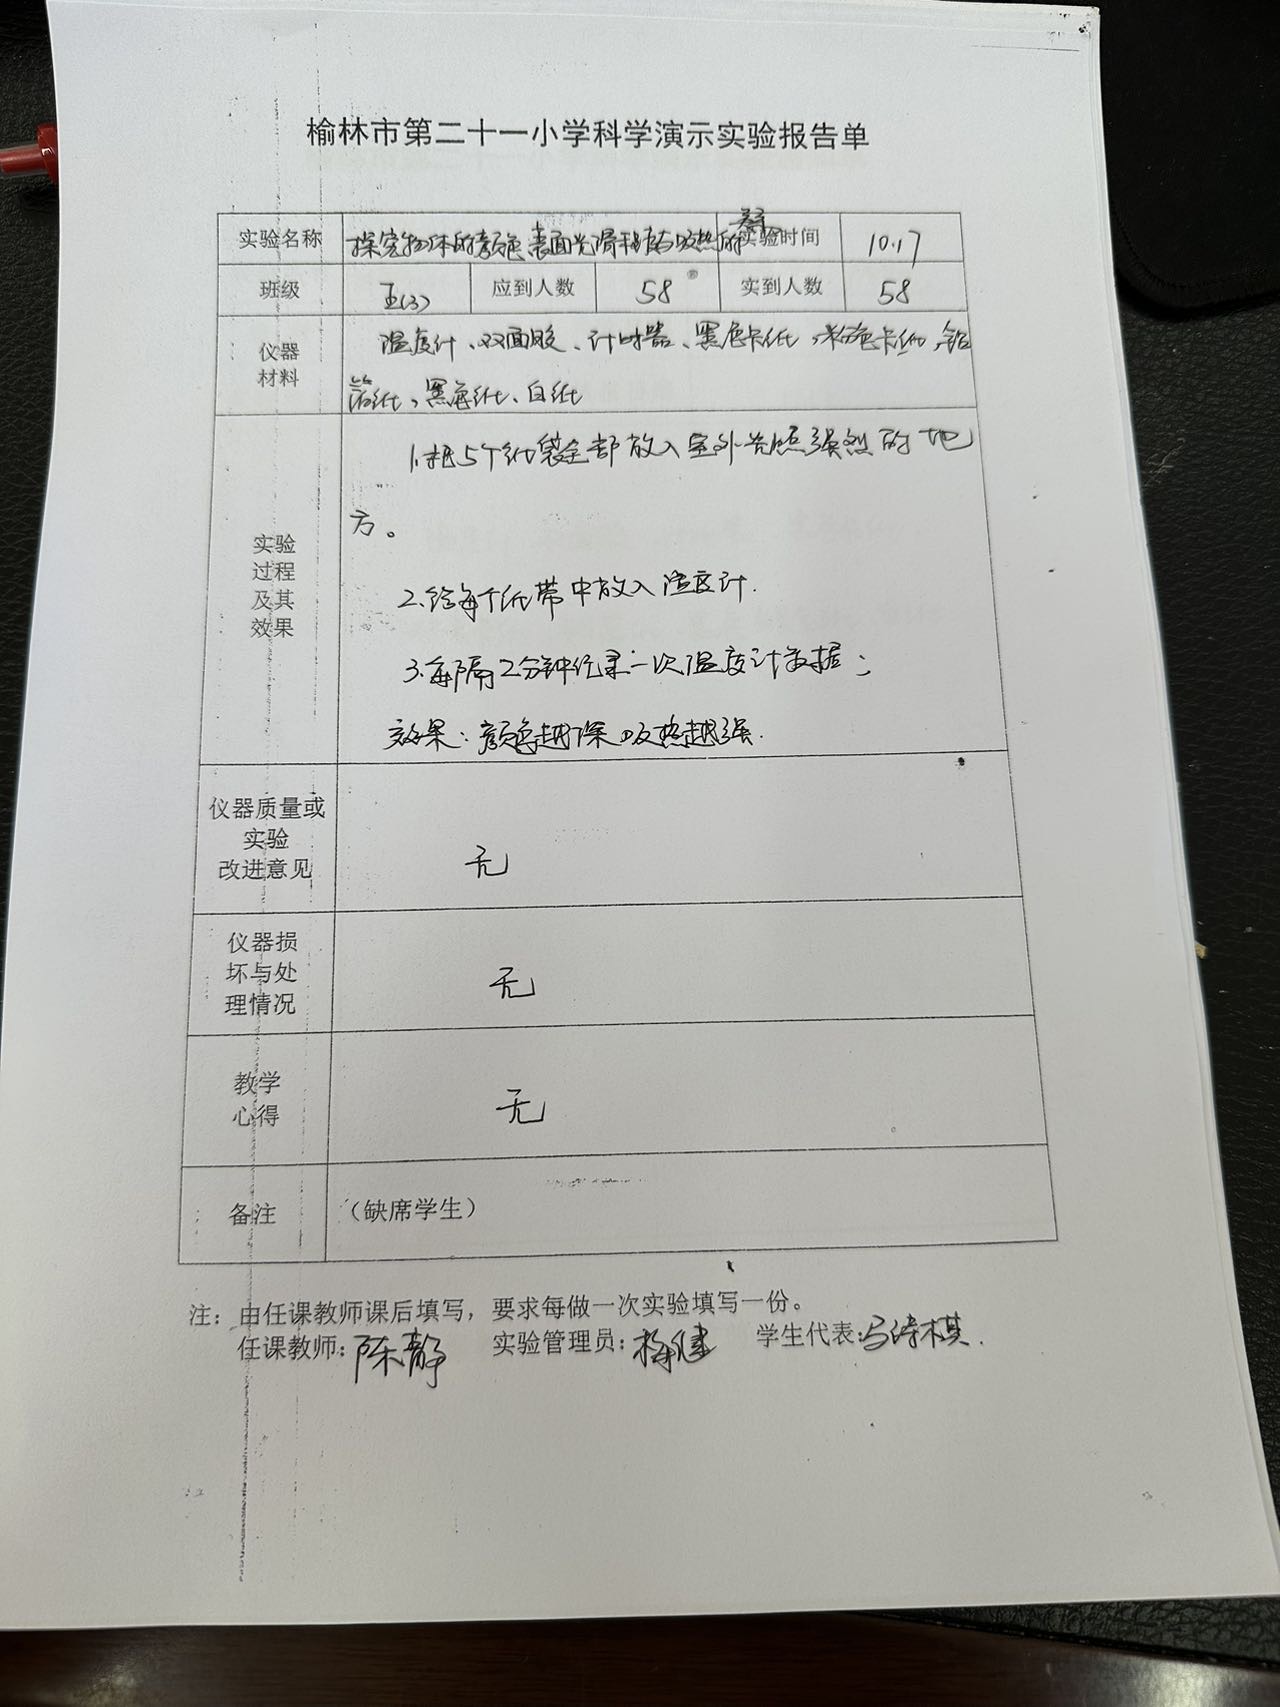 榆林市第二十一小学科学演示实验报告单
实验名称 探究物体的颜色表面光滑程度与吸热的关系 实验时间 10.17
班级 五(3) 应到人数 58 实到人数 58
仪器
材料
温度计、双面胶、计时器、黑色卡纸、粉色卡纸、铝
箔纸、黑色纸、白纸
实验
过程
及其
效果
1.把5个纸袋全部放入室外光照强烈的地
方。
2.给每个纸带中放入温度计.
3.每隔2分钟纪录一次温度计数据;
效果:颜色越深吸热越强.
仪器质量或
实验
改进意见
无
仪器损
坏与处
理情况
无
教学
心得
无
备注 (缺席学生)
注:由任课教师课后填写,要求每做一次实验填写一份。
任课教师:陈静 实验管理员: 学生代表:马诗棋.